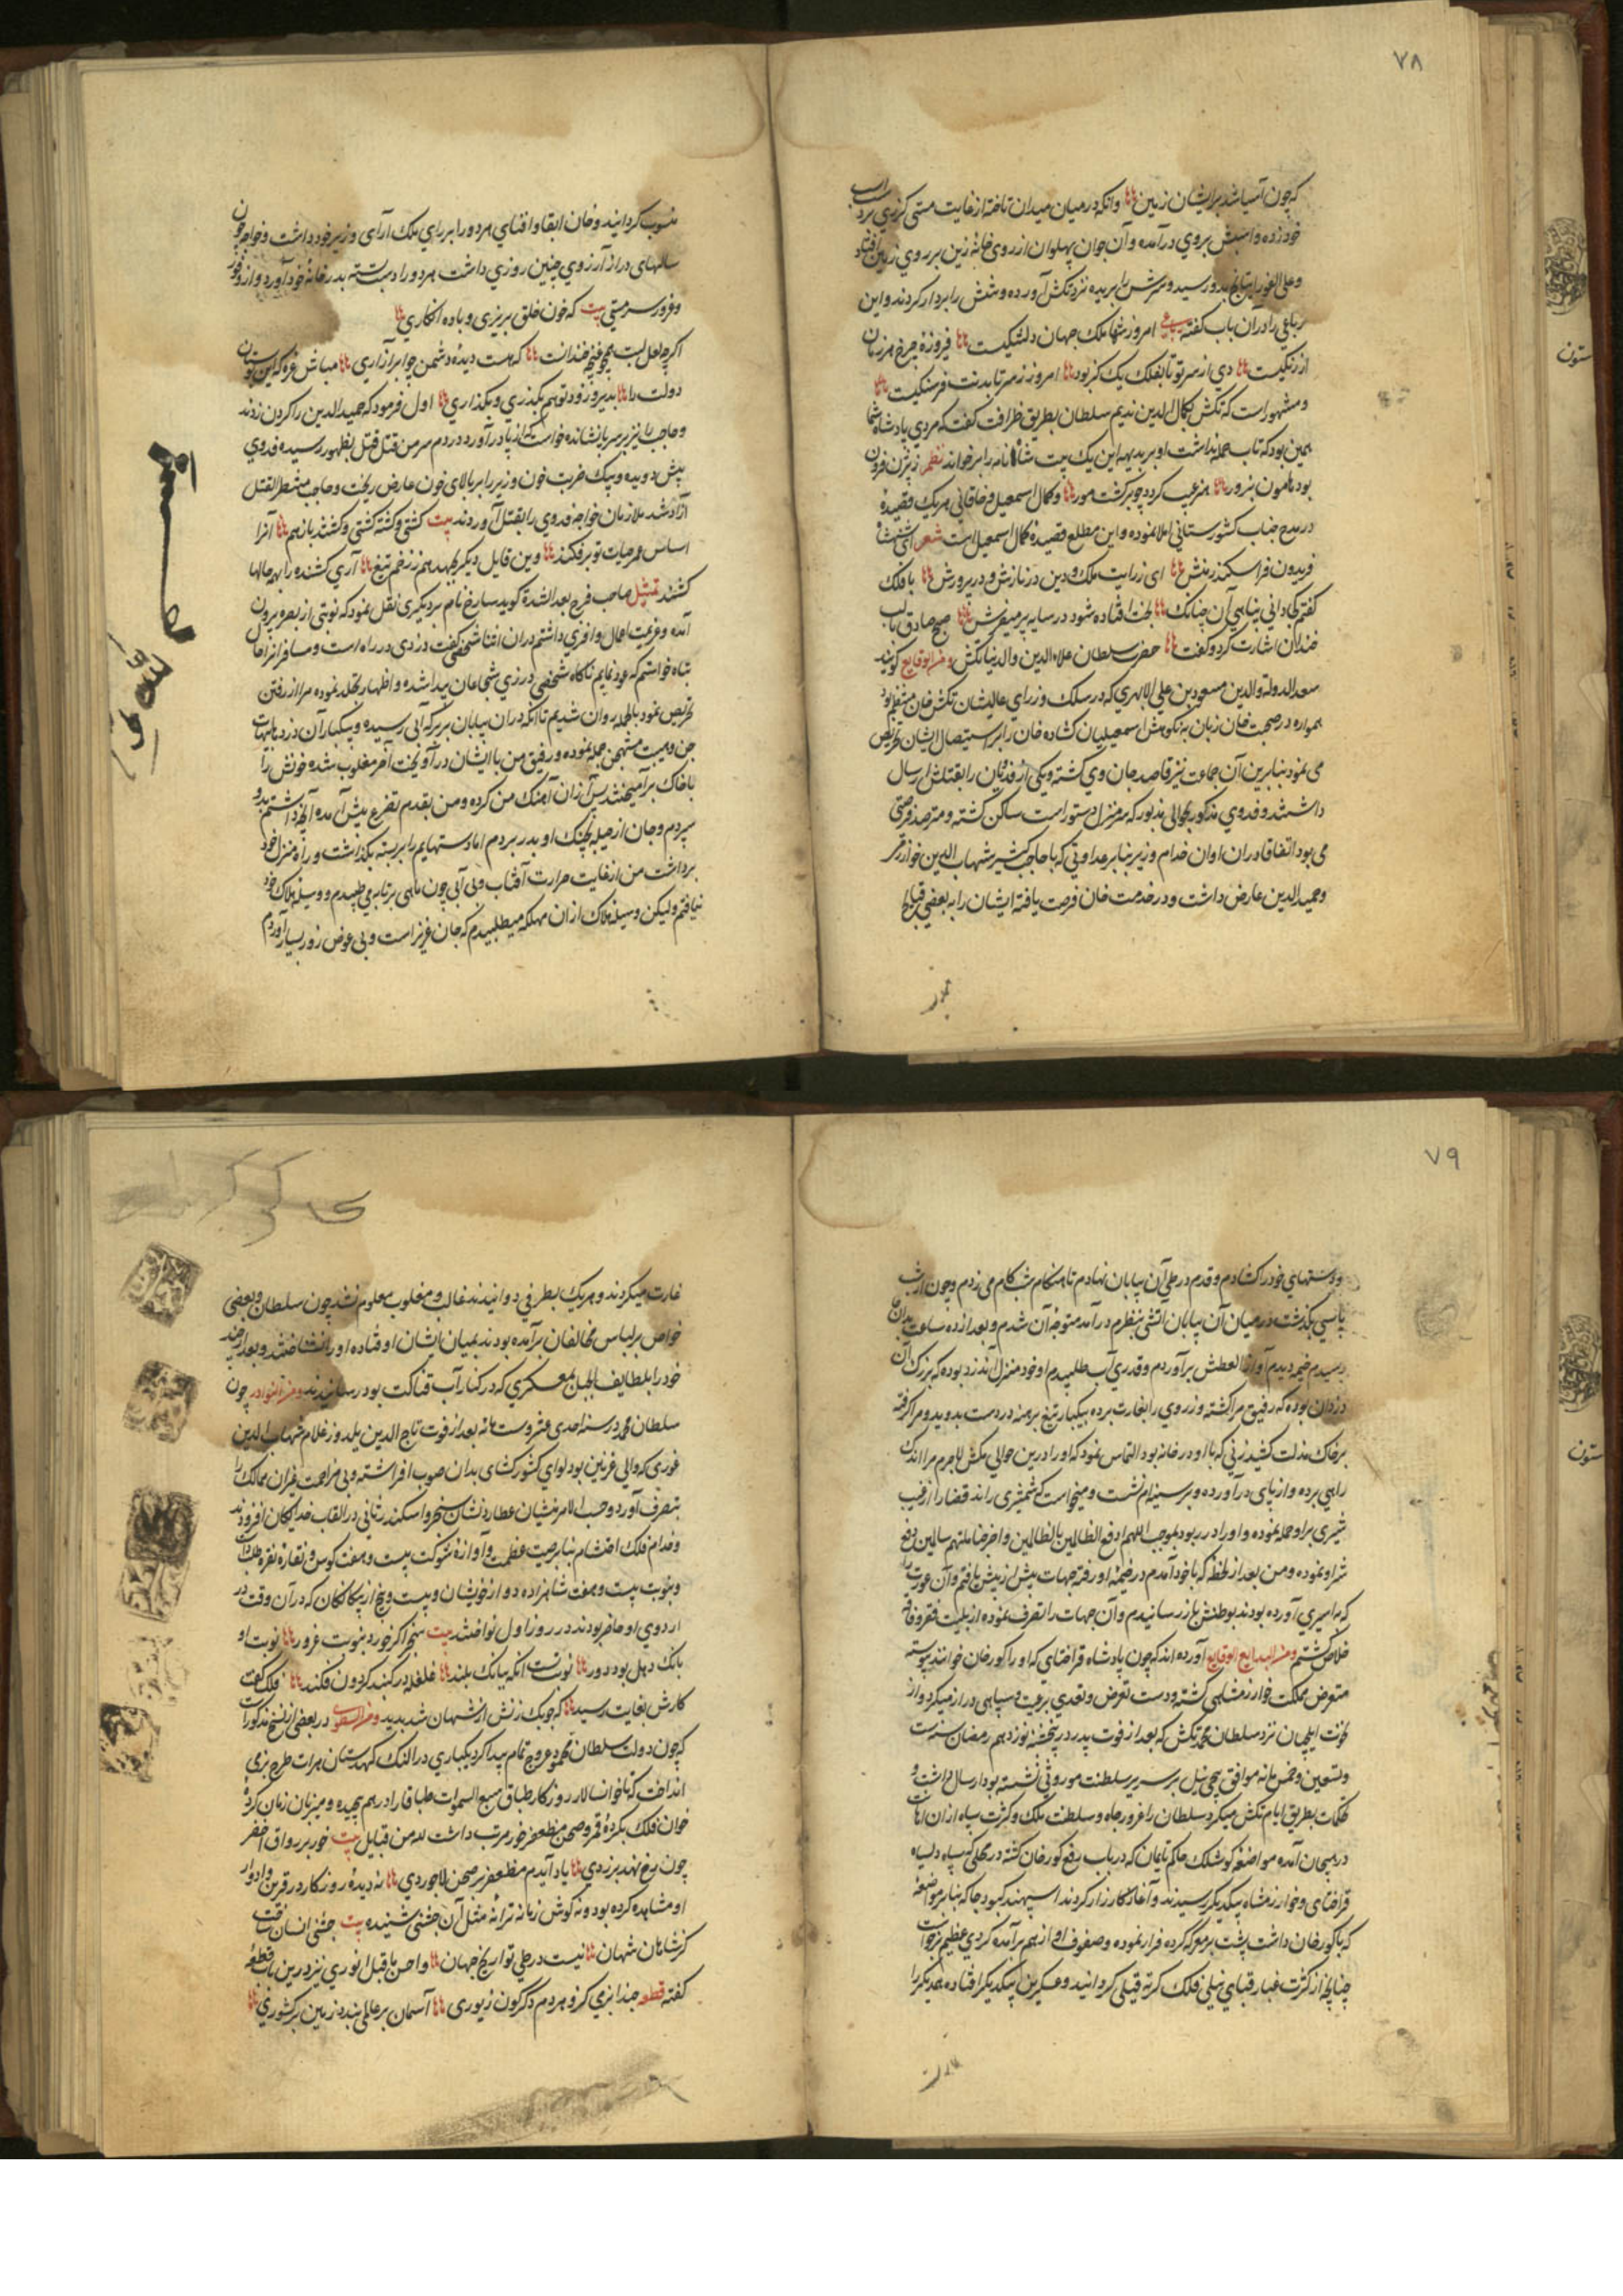 ۷۸
که چون آسیا شد بر ایشان زمین وانکه در میان میدان تاخته از غایت مستی کرزی بر
خود زده و اسبش بروی درآمده و آن جوان پهلوان از روی خانه زین بر روی زمین افتاد
و علی الفور بدو رسید و سرش را بریده نزد تکش آورده و تنش را بردار کردند و این
رباعی را در آن باب گفته امروز شها ملک جهان دلتنگیست فیروزه چرخ هر زمان
از رنگیست دی از سر تو تا بفلک یک گز بود امروز ز سر تا بدنت فرسنگیست
و مشهور است که تکش بکمال الدین ندیم سلطان بطریق ظرافت گفت که مردی پادشاه شما
همین بود که تاب حمله نداشت او بر بدیهه این یک بیت شاه نامه را بر خواند نظم ز بیژن فزون
بود هامون بزور هنر عیب گردد چو برگشت هور و کمال اسمعیل و خاقانی هر یک قصیده
در مدح جناب کشورستانی املا نموده و این مطلع قصیده کمال اسمعیل است شعر ای شهنشاه
فریدون فر اسکندر منش ای ز رایت ملک و دین در نازش و در پرورش با فلک
گفتم که دانی پناهی آن چنانک شود در سایه پر میفرش صبح صادق تا لب
خندان اشارت کرد و گفت حضرت سلطان علاء الدین و الدنیا تکش ومن الوقایع گویند
سعد الدولة والدین مسعود بن علی الابهری که در سلک وزرای عالیشان تکش خان منتظم بود
همواره در صحبت خان زبان به نکوهش اسمعیلیان گشاده خان را بر استیصال ایشان تحریص
می نمود بنابرین آن جماعت نیز قاصد جان وی گشته و یکی از فدویان را بقتلش ارسال
داشتند و فدوی مذکور بحوالی بدبور که سر منزل دستور است ساکن گشته و مترصد فرصتی
می بود اتفاقا در ان اوان خدام وزیر بنا بر عداوتی که با حاجب کبیر شهاب الدین خوارزمی
و حمید الدین عارض داشت و در خدمت خان فرصت یافته ایشان را به بعضی قبایح
منسوب گردانید و خان ابقا و افنای هر دو را بر رای ملک آرای وزیر خود داشت و خواجه چون
سالهای دراز آرزوی چنین روزی داشت هر دو را دست بسته بدر خانه خود آورد و از وفور
و غرور سر مستی بیت که خون خلق بریزی و باده انکاری
اگر چه لعل لبت همچو غنچه خندانست که هست دیده دشمن چو ابر آزاری مباش غره که این بوستان
دولت را بدیر و زود تو هم بگذری و بگذاری اول فرمود که حمید الدین را گردن زدند
و حاجب را نیز بر سر پا نشانده خواست که از پا در آورد در دم سر من قتل قتل بظهور رسیده فدوی
پیش دویده و بیک ضربت خون وزیر را بر بالای خون عارض ریخت و حاجب منتظر القتل
آزاد شد ملازمان خواجه فدوی را بقتل آوردند بیت کشتی و کشته کشتی و کشند باز هم آنرا
اساس عمر حیات تو بر فکند وین قایل دیگر بجهد هم ز زخم تیغ آری کشنده را بهمه حالها
کشند تمثیل صاحب فرج بعد الشدة گوید سارخ نام بر دیگری نقل نمود که نوبتی از بصره بیرون
آمده و عزیمت اعمال وافری داشتم در ان اثنا شخصی گفت دزدی در راه است و مسافرانرا
تباه خواستم که عود نمایم ناگاه شخصی در زی شجاعان پیدا شده و اظهار تجلد نموده مرا از رفتن
تحریص نمود بالجمله روان شدیم تا آنکه در ان بیابان بر برکه آبی رسیده و بیکبار آن دزد
حمله نموده و رفیق من با ایشان در آویخت آخر مغلوب شده خونش را
با خاک بر آمیختند پس از آن آهنگ من کرده و من بقدم تضرع پیش آمده آنچه داشتم بدو
سپردم و جان از حیله بچنک او بدر بردم اما دستهایم را بر بسته بگذاشت و راه منزل خود
برداشت من از غایت حرارت آفتاب و بی آبی چون ماهی بر تابه می طپیدم و وسیله هلاک خود
نیافتم و لیکن وسیله هلاک از ان مهلکه میطلبیدم که جان عزیز است و بی عوض زور بسیار آوردم
۷۹
و دستهای خود را کشادم و قدم در طی آن بیابان نهادم تا هنگام شب گام می زدم و چون از شب
پاسی بگذشت در میان آن بیابان آتشی بنظرم در آمد متوجه آن شدم و بعد از ده ساعت بدان
رسیدم خیمه دیدم آواز العطش بر آوردم و قدری آب طلبیدم او خود منزل آن دزد بوده که بزرک آن
دزدان بوده که رفیق مرا کشته و زر وی را بغارت برده بیکبار تیغ برهنه در دست بدوید و مرا گرفته
بر خاک مذلت کشید زنی که با او در خانه بود التماس نمود که او را درین حوالی مکش لاجرم مرا اندک
راهی برده و از پای در آورده و بر سینه ام نشست و میخواست که شمشیری راند قضا را از غیب
شیری برو حمله نموده و او را در ربود بموجب اللهم ادفع الظالمین بالظالمین واخرجنا منهم سالمین دفع
شر او نموده و من بعد از لحظه که با خود آمدم در خیمه او رفته جهات بیش از پیش یافتم و آن عورت را
که به اسیری آورده بودند بوطنش باز رسانیدم و آن جهات را تصرف نموده از بلیت فقر و فاقه
خلاص گشتم ومن البدایع الوقایع آورده اند که چون پادشاه قراختای که او را کورخان خوانند پیوسته
متعرض مملکت خوارزمشاهی گشته و دست تعرض و تعدی برعیت و سپاهی دراز میکرد و از
ایلچیان نزد سلطان محمد تکش که بعد از فوت پدر در پنجشنبه نوزدهم رمضان سنه ست
و تسعین و خمس مائه موافق پیچی ئیل بر سریر سلطنت موروثی نشسته بود ارسال داشت و
تحکمات بطریق ایام تکش میکرد سلطان را غرور جاه و سلطنت ملک و کثرت سپاه از ان اهانت
در هیجان آمده مواضعه کوشلک حاکم نایمان که در باب رفع کورخان گشته در محلی که سپاه دلسیاه
قراختای و خوارزمشاه بیکدیگر رسیدند و آغاز کارزار کردند اسپهبد کبود جامه که بنا بر مواضعه
که با کورخان داشت پشت بر معرکه کرده فرار نموده و صفوف او از هم بر آمده گردی عظیم برخواست
چنانچه از کثرت غبار قبای نیلی فلک کرته قیلی گردانید و عسکرین بیکدیگر افتاده همدیگر را
غارت میکردند و هر یک بطرفی دوانیدند غالب و مغلوب معلوم نشد چون سلطان و بعضی
خواص بر لباس مخالفان بر آمده بودند بمیان ایشان افتاده او را نشناختند و بعد از چند
خود را بلطایف الحیل بمعسکری که در کنار آب فناکت بود رسانیدند ومن النوادر چون
سلطان محمد در سنه احدی عشر و ستمائه بعد از فوت تاج الدین یلدوز غلام شهاب الدین
غوری که والی غزنین بود لوای کشورکشای بدان صوب افراشته و بی مزاحمت غیر ان ممالک را
بتصرف آورد و حسب الامر منشیان عطارد نشان سنجر و اسکندر ثانی در القاب خدایگان افزودند
و خدام فلک احتشام بنابر صیت عظمت و آوازه شوکت بیست و هفت کوس و نقاره نقره طلا
و بنوبت بیست و هفت شاهزاده و از خویشان و بیست و پنج از بیگانگان که در آن وقت در
اردوی او حاضر بودند در روز اول نواختند بیت سنجر اگر خورد بنوبت غرور نوبت او
بانک دهل بود دور نوبت تست آنکه ببانک بلند غلغله در گنبد گردون فکند فلک گفت
کارش بغایت رسید که چوبک زنش از شهان شد پدید در بعضی از نسخ مذکور است
که چون دولت سلطان محمود عروج تمام پیدا کرد یکباری در النک کهدستان هرات طرح بزمی
انداخت که تا خوانسالار روزگار طباق سبع السموات طباقا را در هم چیده و میزبان زمان گرده
خوان فلک بگرده قمر و صحن مزعفر خور مرتب داشت لله من قبایل بیت خور بر رواق اخضر
چون رخ نهد بزردی یاد آیدم مزعفر بر صحن لاجوردی نه دیده روزگار در قرون و ادوار
او مشاهده کرده بود و نه گوش زمانه ترانه مثل آن جشنی شنیده بیت جشنی انسان ساخت
کز شاهان شهان نیست در طی تواریخ جهان و احسن ما قیل انوری نیز درین باب قطعه
گفته قطعه حبذا بزمی کزو هر دم دگرگون زیوری آسمان بر عالمی بندد زمین بر کشوری
ستون
ستون